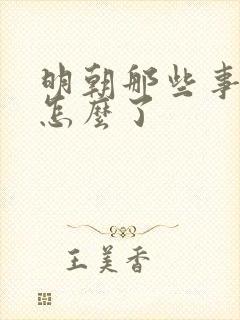 明朝那些事
怎麼了
王美香